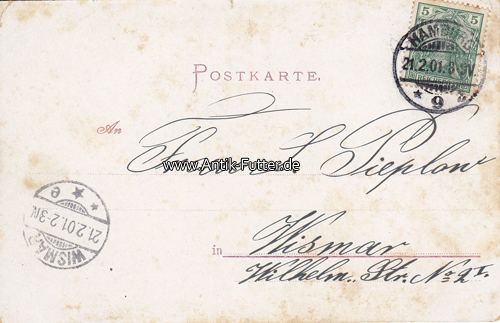 5
HAMBURG
21.2.01.8-9V.
* 9
POSTKARTE.
An
Frl. L Pieplow
www.Antik-Futter.de
WISMAR
21.2.01.2-3N.
* * e
in Wismar
Wilhelm. Str. No 2 I.